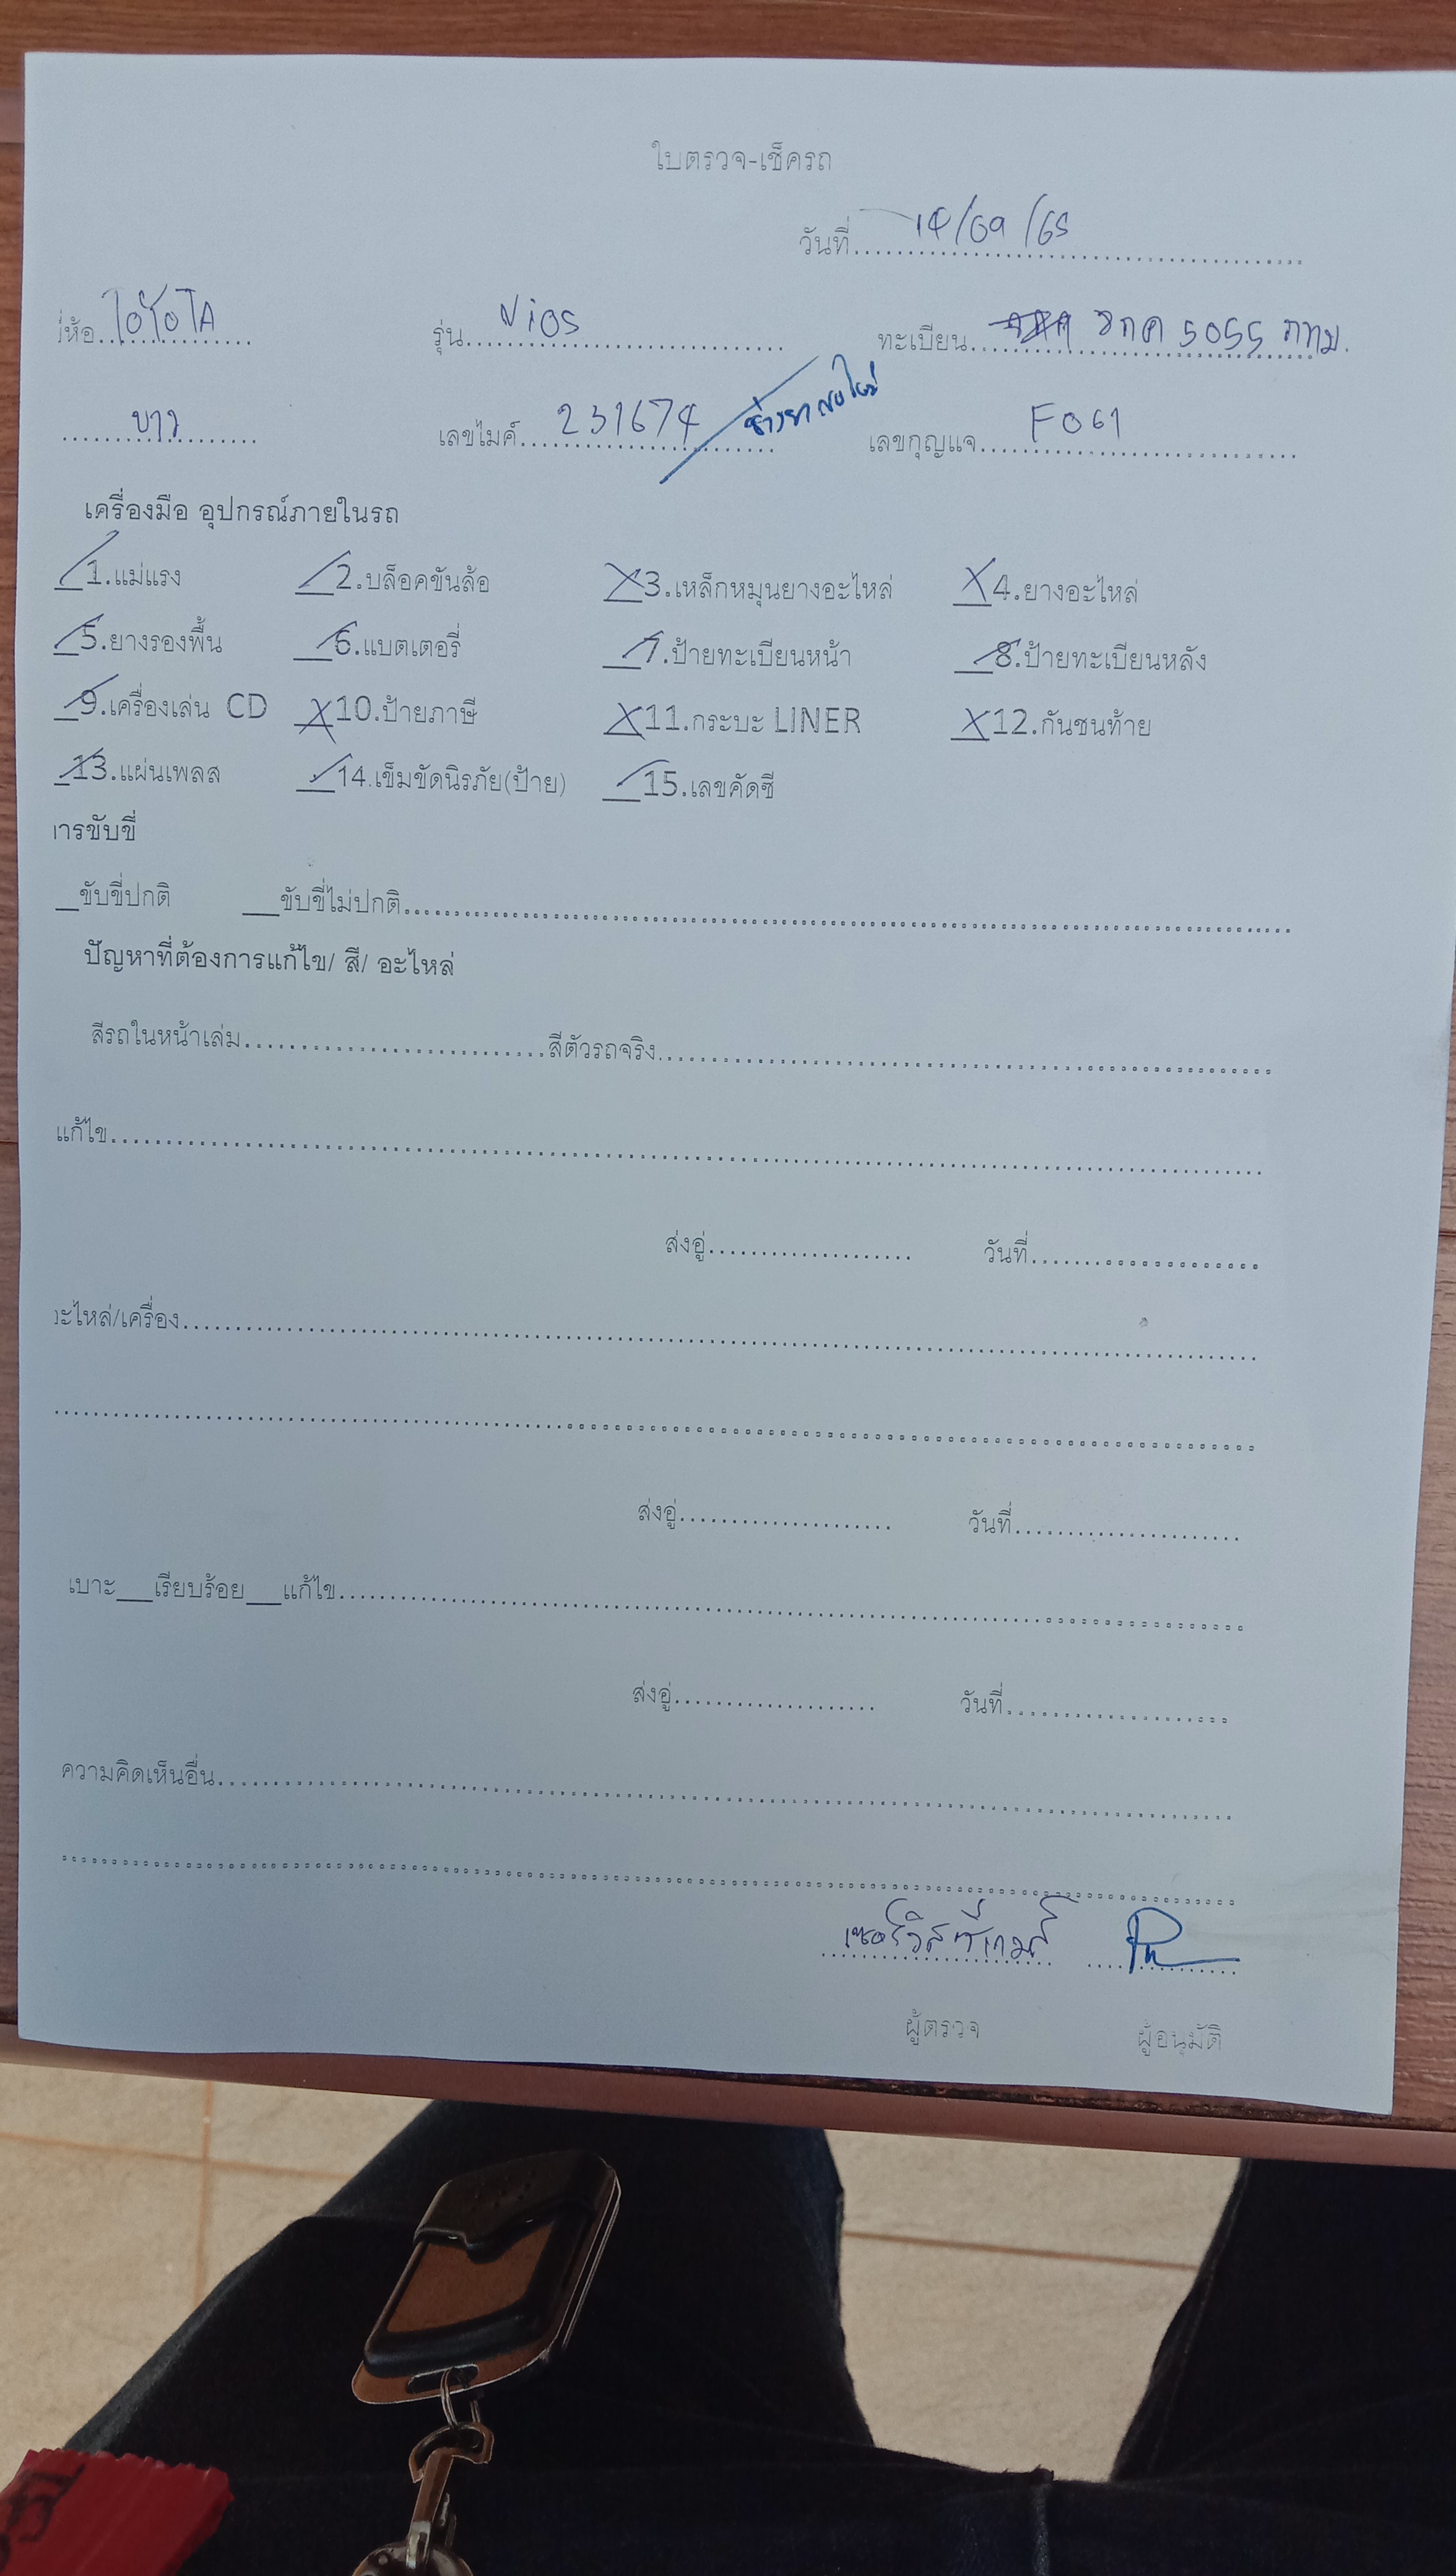 ใบตรวจ-เช็ครถ
วันที่ 14/09/65
ห้อ โตโยต้า รุ่น Vios ทะเบียน ฆกค 5055 กทม.
ขาว เลขไมค์ 231674 เลขกุญแจ F061
เครื่องมือ อุปกรณ์ภายในรถ
1.แม่แรง 2.บล็อคขันล้อ 3.เหล็กหมุนยางอะไหล่ 4.ยางอะไหล่
5.ยางรองพื้น 6.แบตเตอรี่ 7.ป้ายทะเบียนหน้า 8.ป้ายทะเบียนหลัง
9.เครื่องเล่น CD 10.ป้ายภาษี 11.กระบะ LINER 12.กันชนท้าย
13.แผ่นเพลส 14.เข็มขัดนิรภัย(ป้าย) 15.เลขคัดซี
ารขับขี่
ขับขี่ปกติ ขับขี่ไม่ปกติ
ปัญหาที่ต้องการแก้ไข/ สี/ อะไหล่
สีรถในหน้าเล่ม สีตัวรถจริง
แก้ไข
ส่งอู่ วันที่
ะไหล่/เครื่อง
ส่งอู่ วันที่
เบาะ เรียบร้อย แก้ไข
ส่งอู่ วันที่
ความคิดเห็นอื่น
ผู้ตรวจ ผู้อนุมัติ